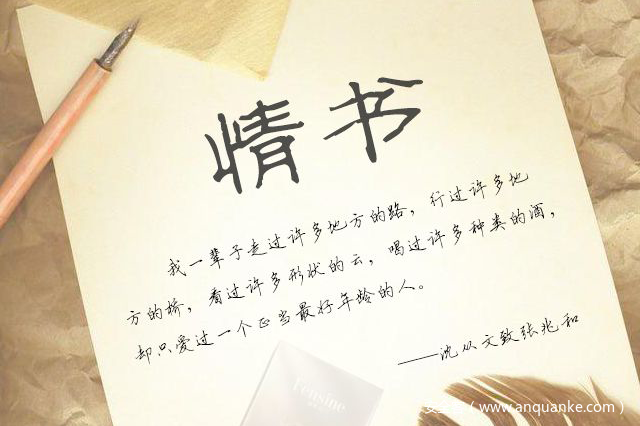 情书
我一辈子走过许多地方的路，行过许多地
方的桥，看过许多形状的云，喝过许多种类的酒，
却只爱过一个正当最好年龄的人。
——沈从文致张兆和
Fensine
(www.anquanke.com)